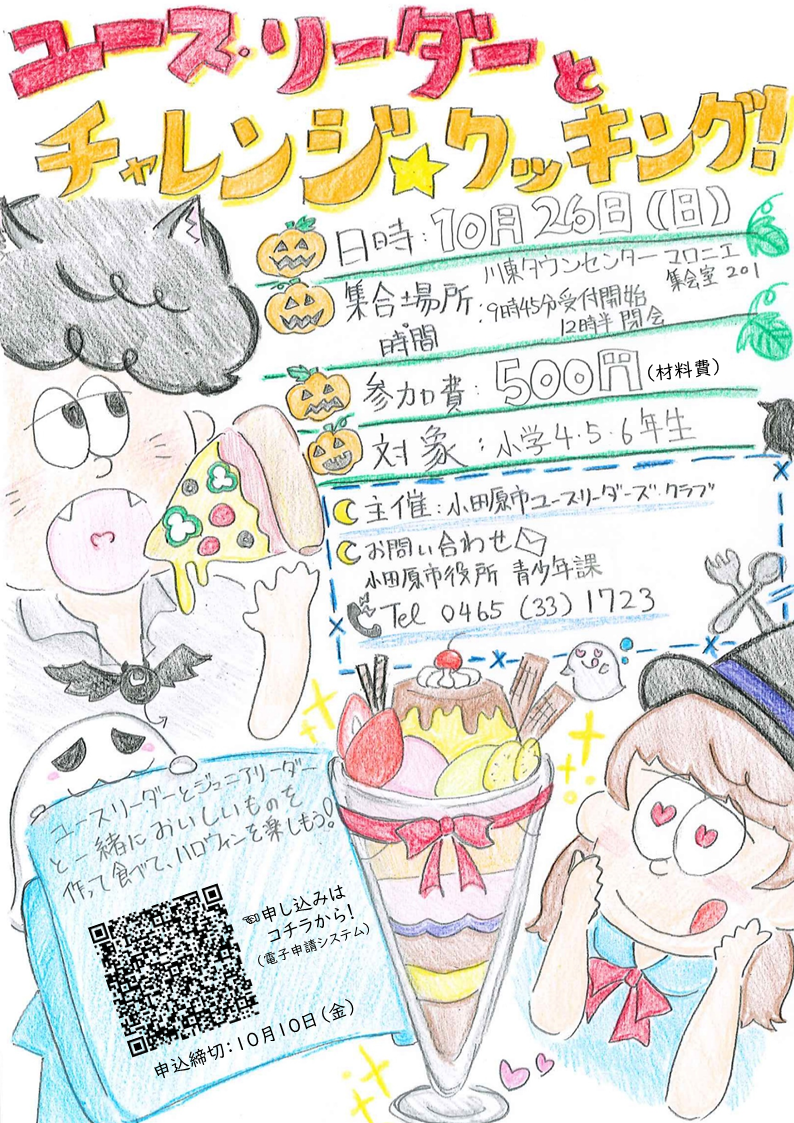 ユース・リーダーと
チャレンジ☆クッキング!
日時:10月26日(日)
集合場所・時間:川東タウンセンターマロニエ
集会室 201
9時45分受付開始
12時半 閉会
参加費:500円(材料費)
対象:小学4・5・6年生
主催:小田原市ユースリーダーズ・クラブ
お問い合わせ
小田原市役所 青少年課
Tel 0465 (33) 1723
ユースリーダーとジュニアリーダー
と一緒においしいものを
作って食べて、ハロウィンを楽しもう!
申し込みは
コチラから!
(電子申請システム)
申込締切:10月10日(金)